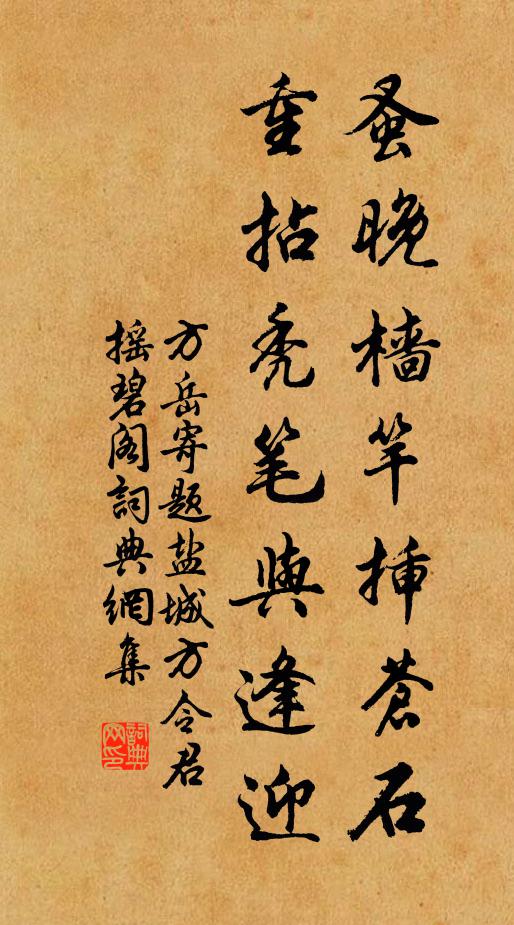 蚤晚樯竿插苍石
重拈秃笔與逢迎
方岳寄题盐城方令君
摇碧阁詞典網集
詞典网印